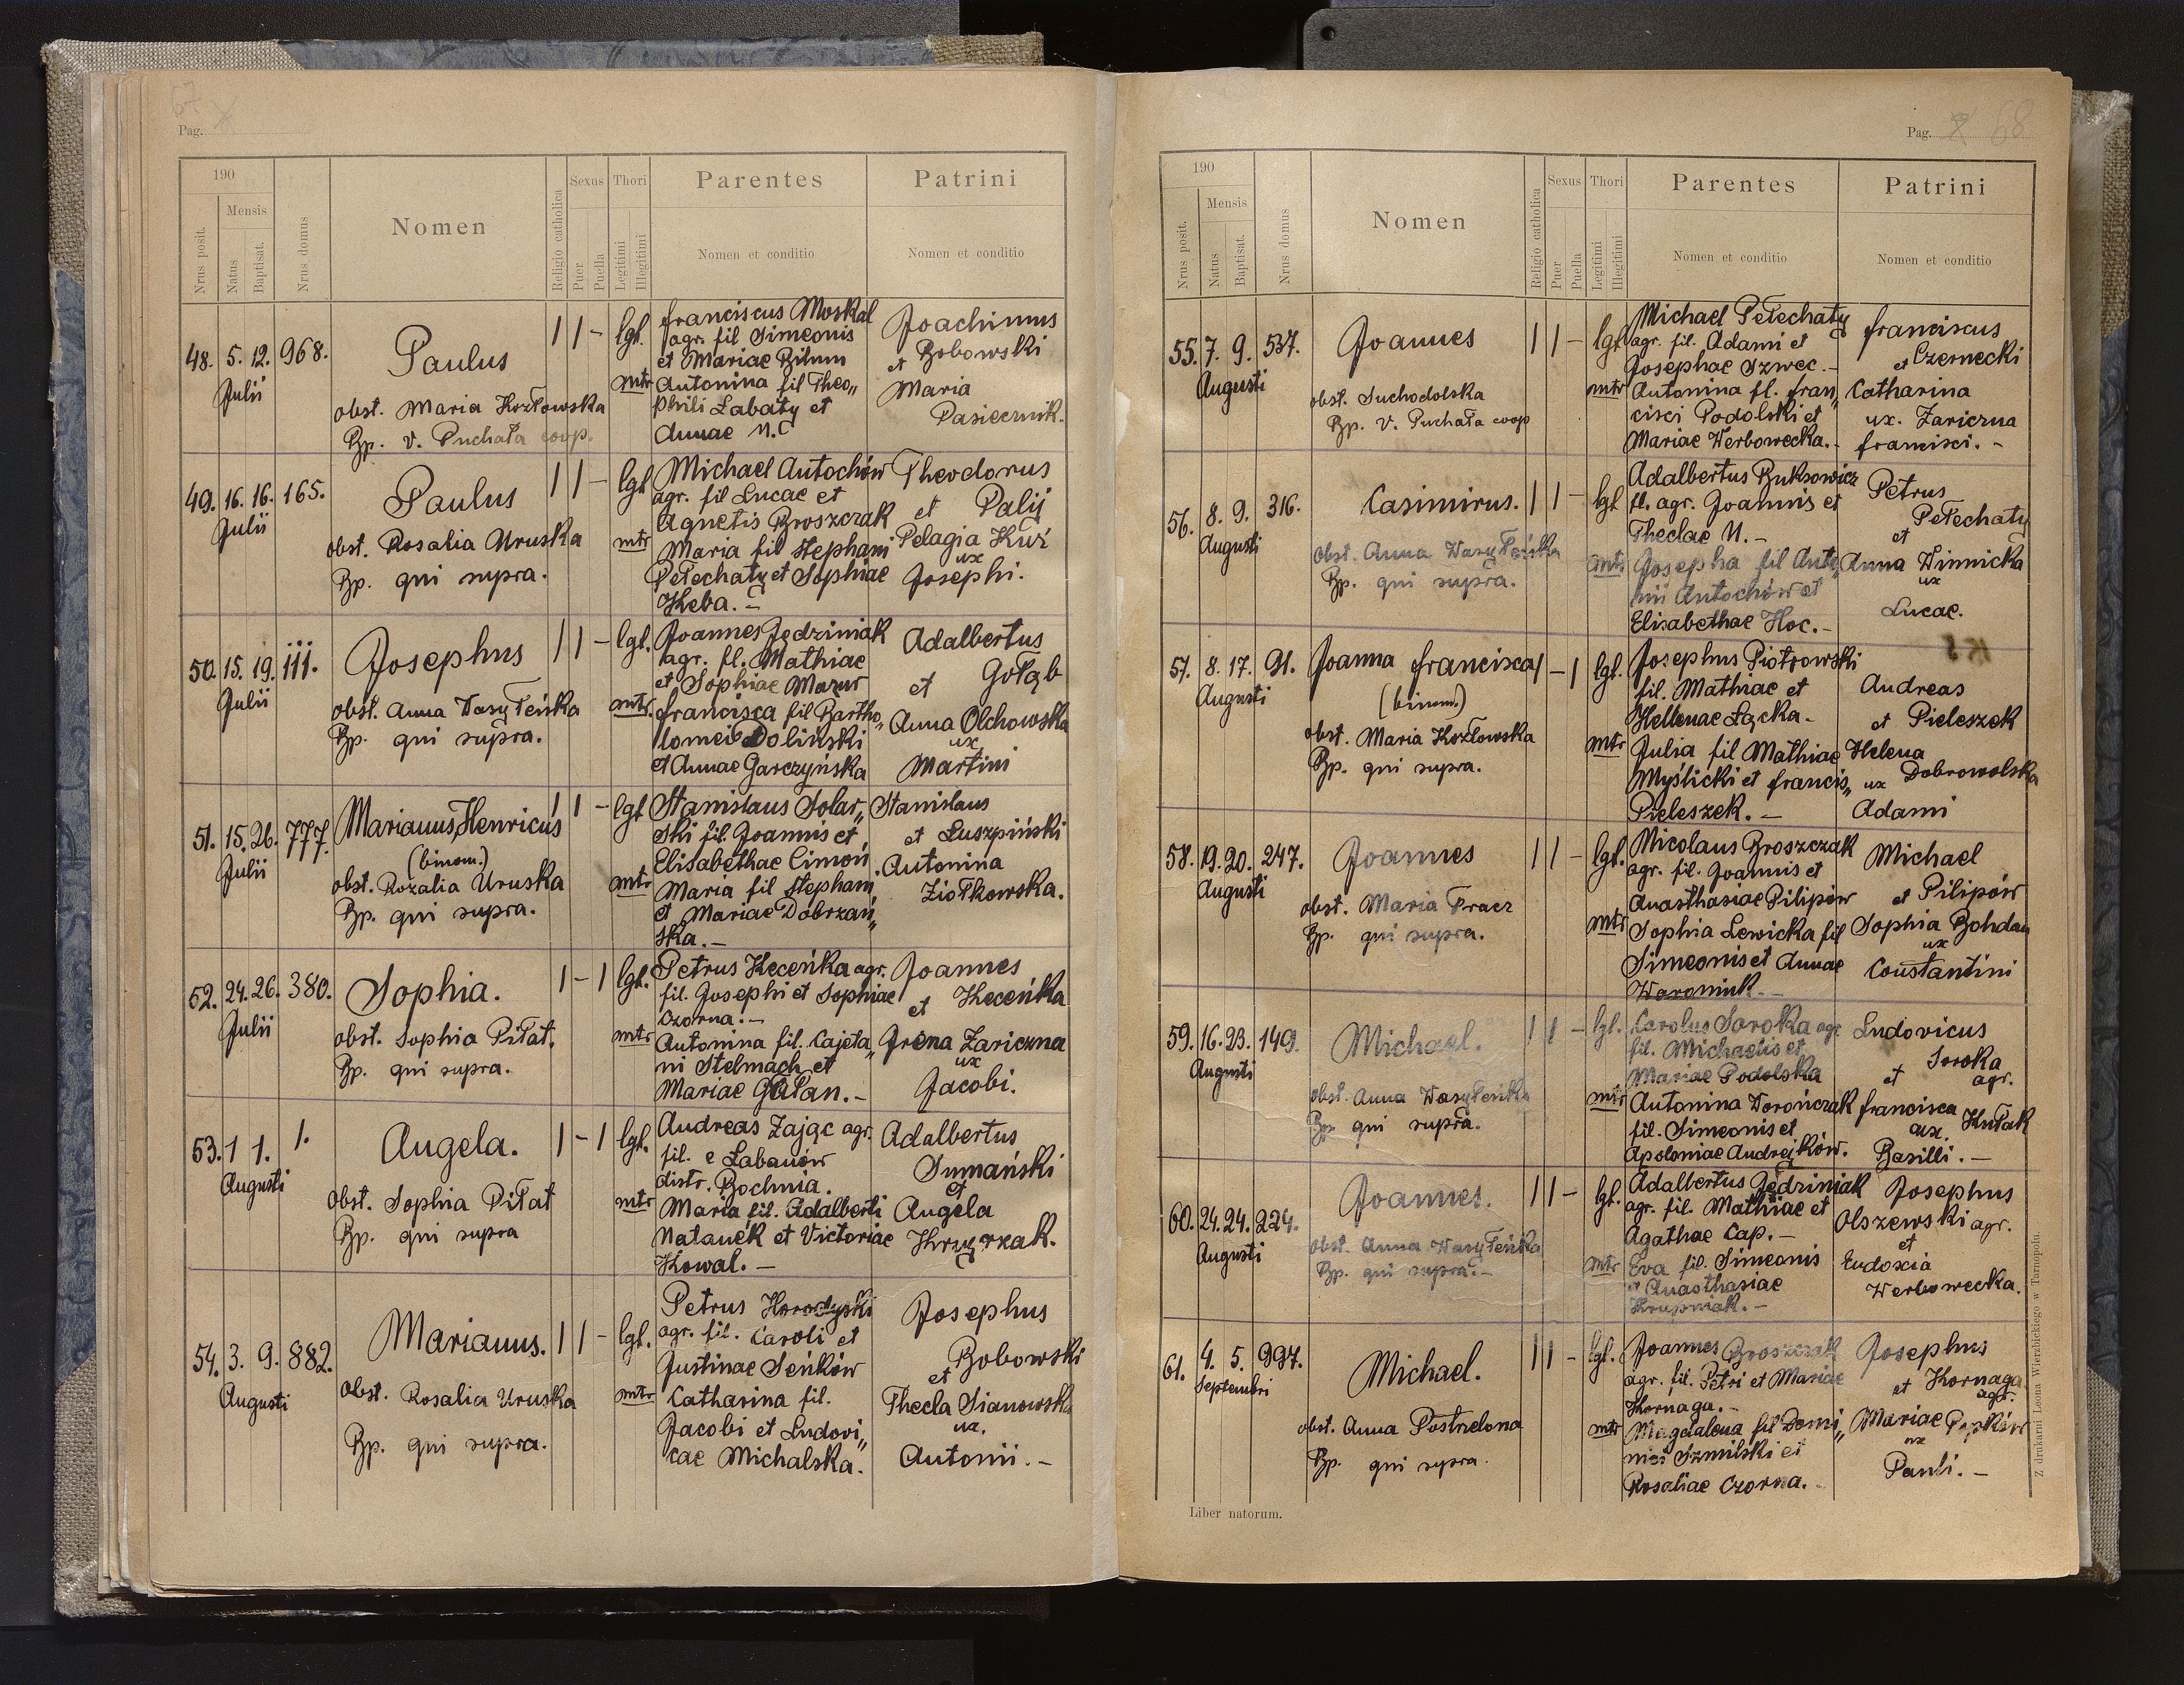 67
Pag.
190
Nrus posit.
Mensis
Natus
Baptisat.
Nrus domus
Nomen
Religio catholica
Sexus
Puer
Puella
Thori
Legitimi
Illegitimi
Parentes
Nomen et conditio
Patrini
Nomen et conditio
48. 5. 12. 968.
Julii
Paulus
obst. Maria Kozłowska
Bp. V. Puchała coop.
1 1 - lgt.
mtr
franciscus Moskal
agr. fil. Simeonis
et Mariae Bilum
Antonina fil Theo„
phili Łabaty et
Annae N.
Joachimus
et Bobowski
Maria
Pasiecznik.
49. 16. 16. 165.
Julii
Paulus
obst. Rosalia Uruska
Bp. qui supra.
1 1 - lgt
mtr
Michael Antochów
agr. fil Lucae et
Agnetis Broszczak
Maria fil Stephani
Petechaty et Sophiae
Keba. -
Theodorus
et Palij
Pelagia Kuź
ux
Josephi.
50. 15. 19. 111.
Julii
Josephus
obst. Anna Wasyłeńka
Bp. qui supra.
1 1 - lgt.
mtr.
Joannes Jędziniak
agr. fl. Mathiae
et Sophiae Mazur
francisca fil Bartho„
lomei Doliński
et Annae Garczyńska
Adalbertus
et Gołąb
Anna Olchowska
ux
Martini
51. 15. 26. 777.
Julii
Marianus, Henricus
(binom.)
obst. Rozalia Uruska
Bp. qui supra.
1 1 - lgt
mtr
Stanislaus Solar„
ski fil. Joannis et
Elisabethae Cimoń
Maria fil Stephani
et Mariae Dobrzań„
ska. -
Stanislaus
et Łuszpiński
Antonina
Ziołkowska.
52. 24. 26. 380.
Julii
Sophia.
obst. Sophia Piłat.
Bp. qui supra.
1 - 1 lgt.
mtr
Petrus Keceńka agr.
fil. Josephi et Sophiae
Czorna. -
Antonina fil. Cajeta„
ni Stelmach et
Mariae Gałan. -
Joannes
et Keceńka
Irena Zariczna
ux
Jacobi.
53. 1 1. 1.
Augusti
Angela.
obst. Sophia Piłat
Bp. qui supra
1 - 1 lgt.
mtr
Andreas Zając agr.
fil. e Łabanów
distr. Bochnia.
Maria fil. Adalberti
Natanek et Victoriae
Kowal. -
Adalbertus
Sumański
et
Angela
54. 3. 9. 882.
Augusti
Marianus.
obst. Rosalia Uruska
Bp. qui supra.
1 1 - lgt.
mtr
Petrus Horodyski
agr. fil. Caroli et
Justinae Seńków
Catharina fil.
Jacobi et Ludovi„
cae Michalska.
Josephus
Bobowski
et
Thecla Sianowska
ux.
Antonii. -
Pag. 68
190
Nrus posit.
Mensis
Natus
Baptisat.
Nrus domus
Nomen
Religio catholica
Sexus
Puer
Puella
Thori
Legitimi
Illegitimi
Parentes
Nomen et conditio
Patrini
Nomen et conditio
55. 7. 9. 537.
Augusti
Joannes
obst. Suchodolska
Bp. V. Puchała coop
1 1 - lgt
mtr
Michael Petechaty
agr. fil. Adami et
Josephae Szwec. -
Antonina fl. fran„
cisci Podolski et
Mariae Werbowecka. -
franciscus
et Czernecki
Catharina
ux. Zariczna
francisci. -
56. 8. 9. 316.
Augusti
Casimirus.
obst. Anna Wasyłeńka
Bp. qui supra.
1 1 - lgt
mtr.
Adalbertus Buksowicz
fl. agr. Joannis et
Theclae N. -
Josepha fil Anto„
nii Antochów et
Elisabethae Hoc. -
Petrus
Petechaty
et
Anna Winnicka
ux
Lucae.
57. 8. 17. 91.
Augusti
Joanna francisca
(binom.)
obst. Maria Kozłowska
Bp. qui supra.
1 - 1 lgt.
mtr
Josephus Piotrowski
fil. Mathiae et
Hellenae Łącka -
Julia fil Mathiae
Myślicki et francis„
Pieleszek. -
Andreas
et Pieleszek
Helena
ux Dobrowolska
Adami
58. 19. 20. 247.
Augusti
Joannes
obst. Maria Tracz
Bp. qui supra.
1 1 - lgt.
mtr
Nicolaus Broszczak
agr. fil. Joannis et
Anasthasiae Pilipów
Sophia Lewicka fil
Simeonis et Annae
Woroniuk. -
Michael
et Pilipów
Sophia Bohdan
ux
Constantini
59. 16. 23. 149.
Augusti
Michael.
obst. Anna Wasyłeńka
Bp. qui supra.
1 1 - lgt.
mtr
Carolus Soroka agr.
fil. Michaelis et
Mariae Podolska
AntoninaWorończak
fil. Simeonis et
Apoloniae Andrejków.
Ludovicus
Soroka
et agr.
francisca Kułak
ux.
Basilli. -
60. 24. 24. 224.
Augusti
Joannes.
obst. Anna Wasyłeńka
Bp. qui supra. -
1 1 - lgt.
mtr
Adalbertus Jędziniak
agr. fil. Mathiae et
Agathae Cap. -
Eva fil. Simeonis
et Anasthasiae
Krupniak. -
Josephus
Olszewski agr.
et
Eudoxia
Werbowecka.
61. 4. 5. 997.
Septembri
Michael.
obst. Anna Postrelona
Bp. qui supra.
1 1 - lgt.
mtr
Joannes Broszczak
agr. fil. Petri et Mariae
Kornaga. -
Magdalena fil Domi„
nici Szmilski et
Rosaliae Czorna. -
Josephus
et Kornaga
agr.
Mariae
ux
Pauli. -
Liber natorum.
Z drukarni Leona Wierzbickiego w Tarnopolu.